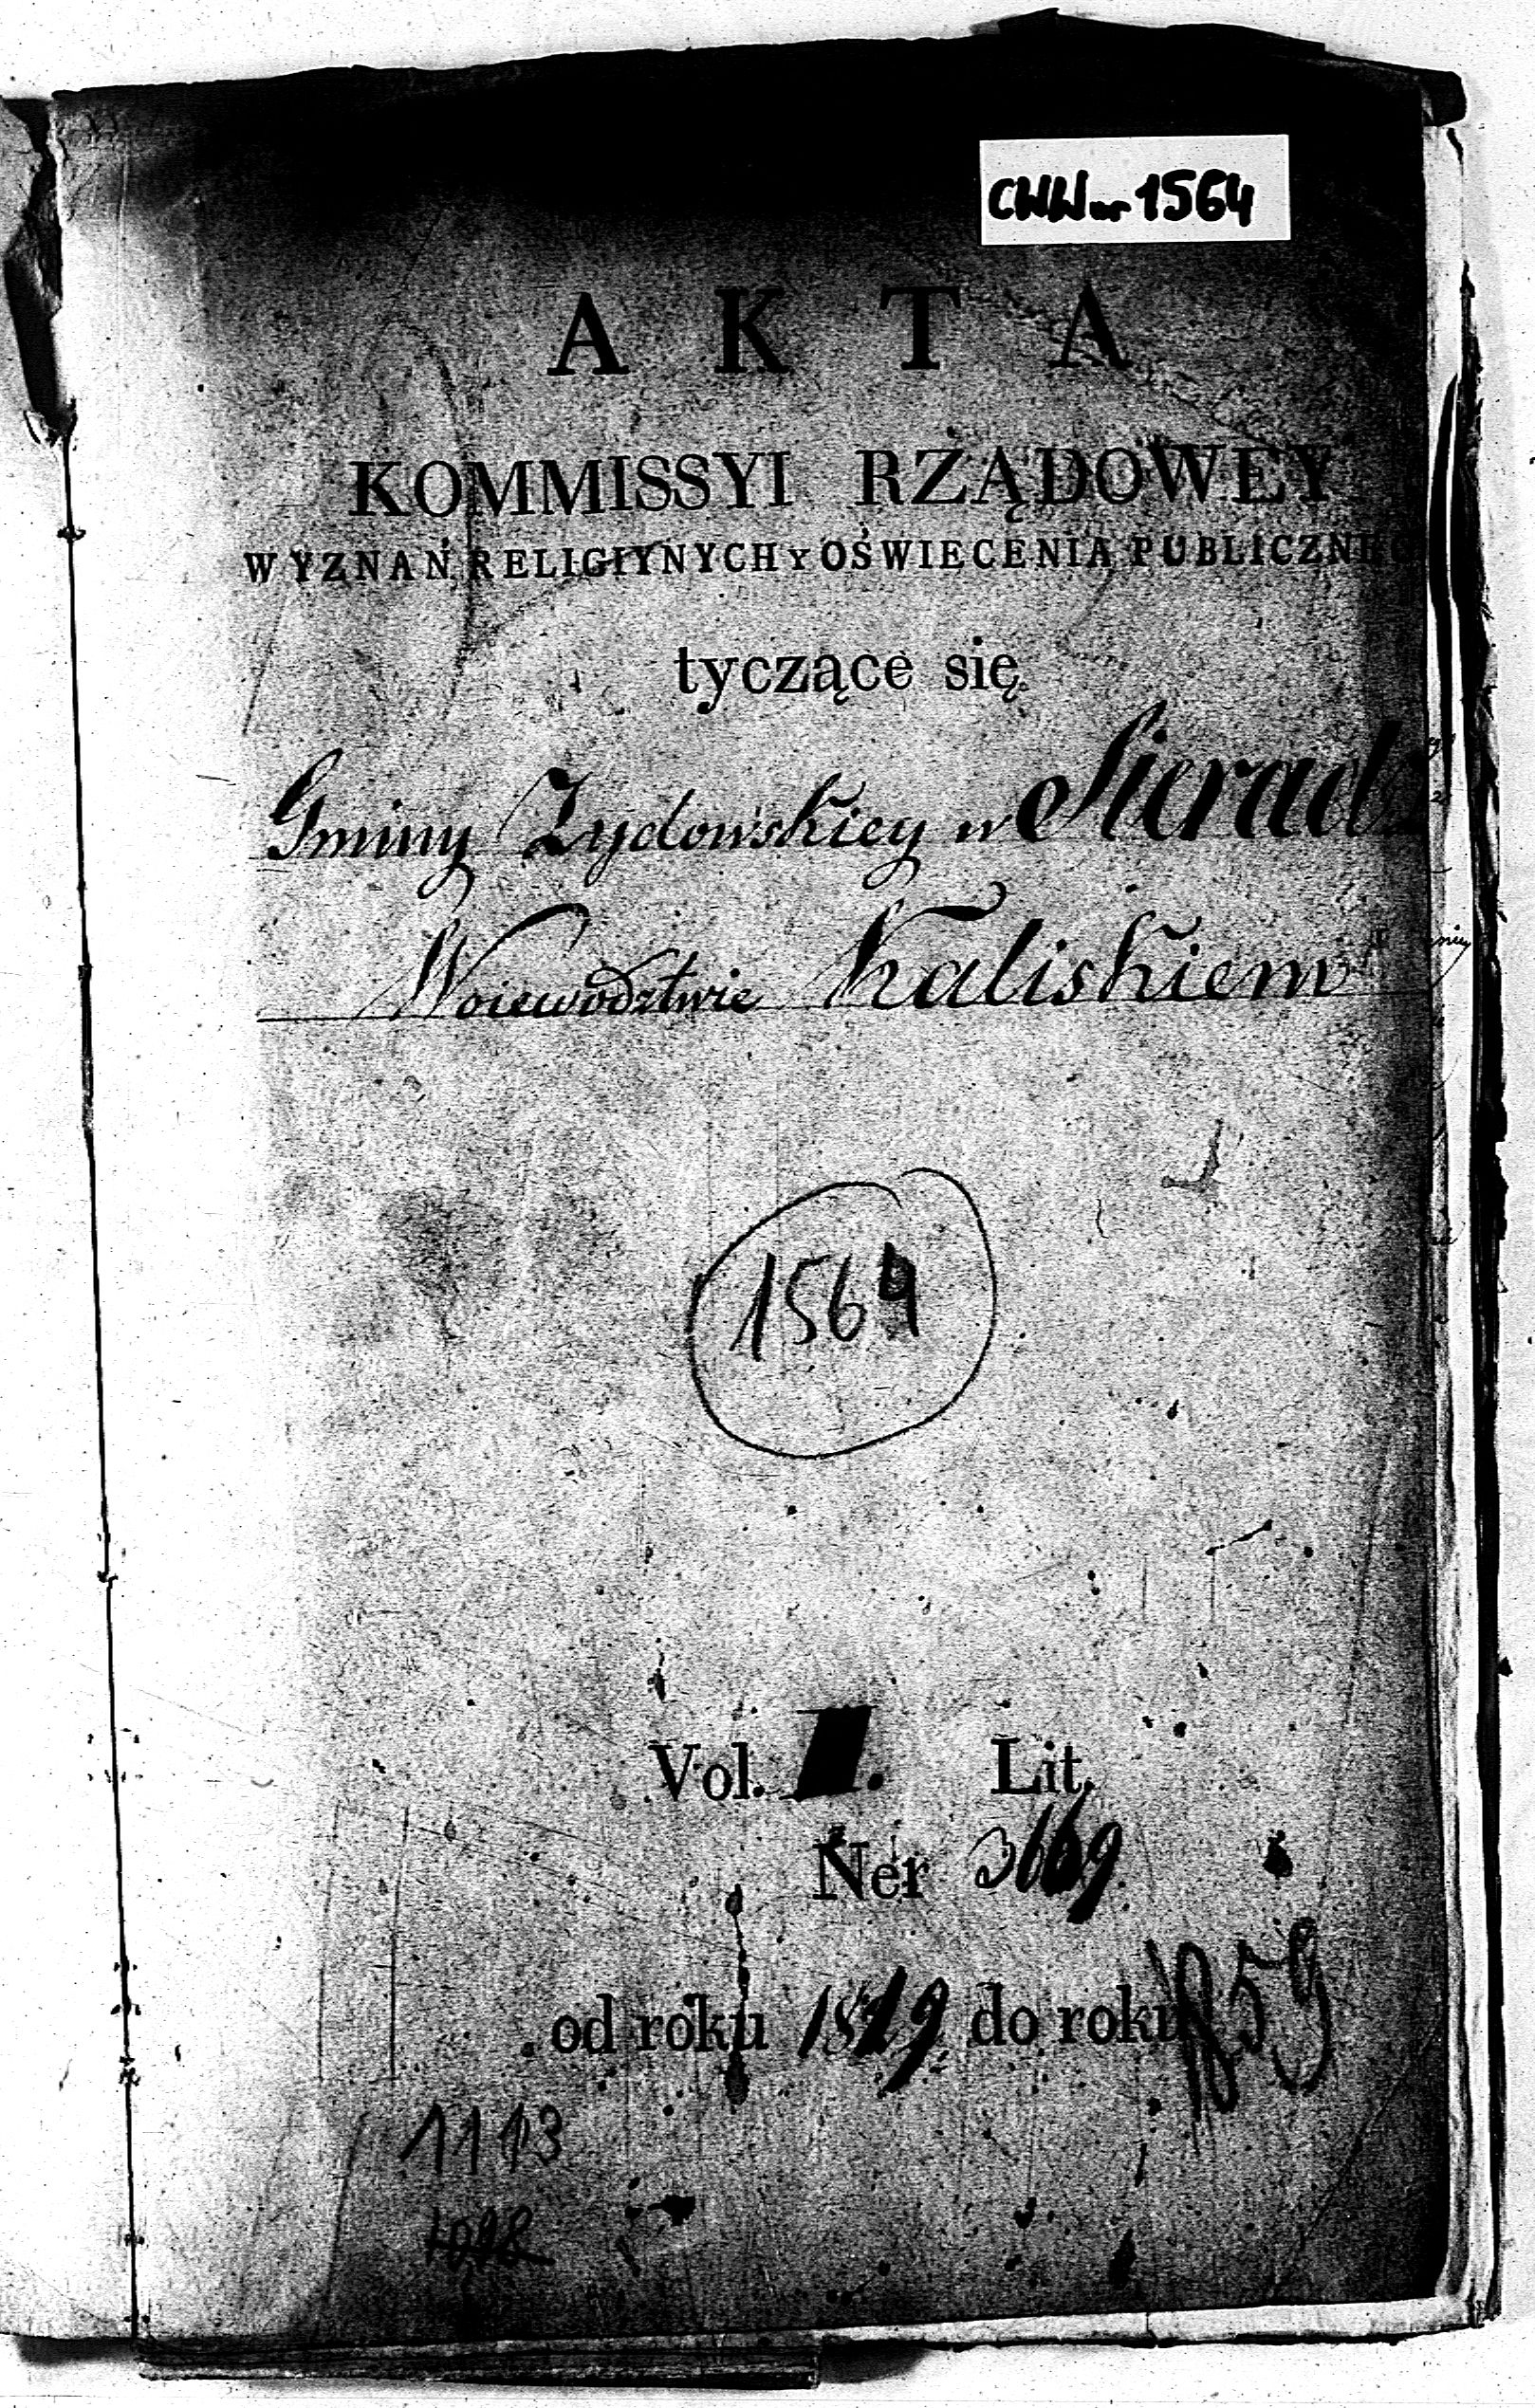 CWW nr 1564
AKTA
KOMMISSYI RZĄDOWEY
WYZNAŃ RELIGIYNYCH Y OŚWIECENIA PUBLICZNEG
tyczące się
Gminy Żydowskiey w Sieradz
Woiewodztwie Kaliskiem
1564
Vol. I. Lit.
Ner 3669
od roku 1819 do roku 859
1113
1098